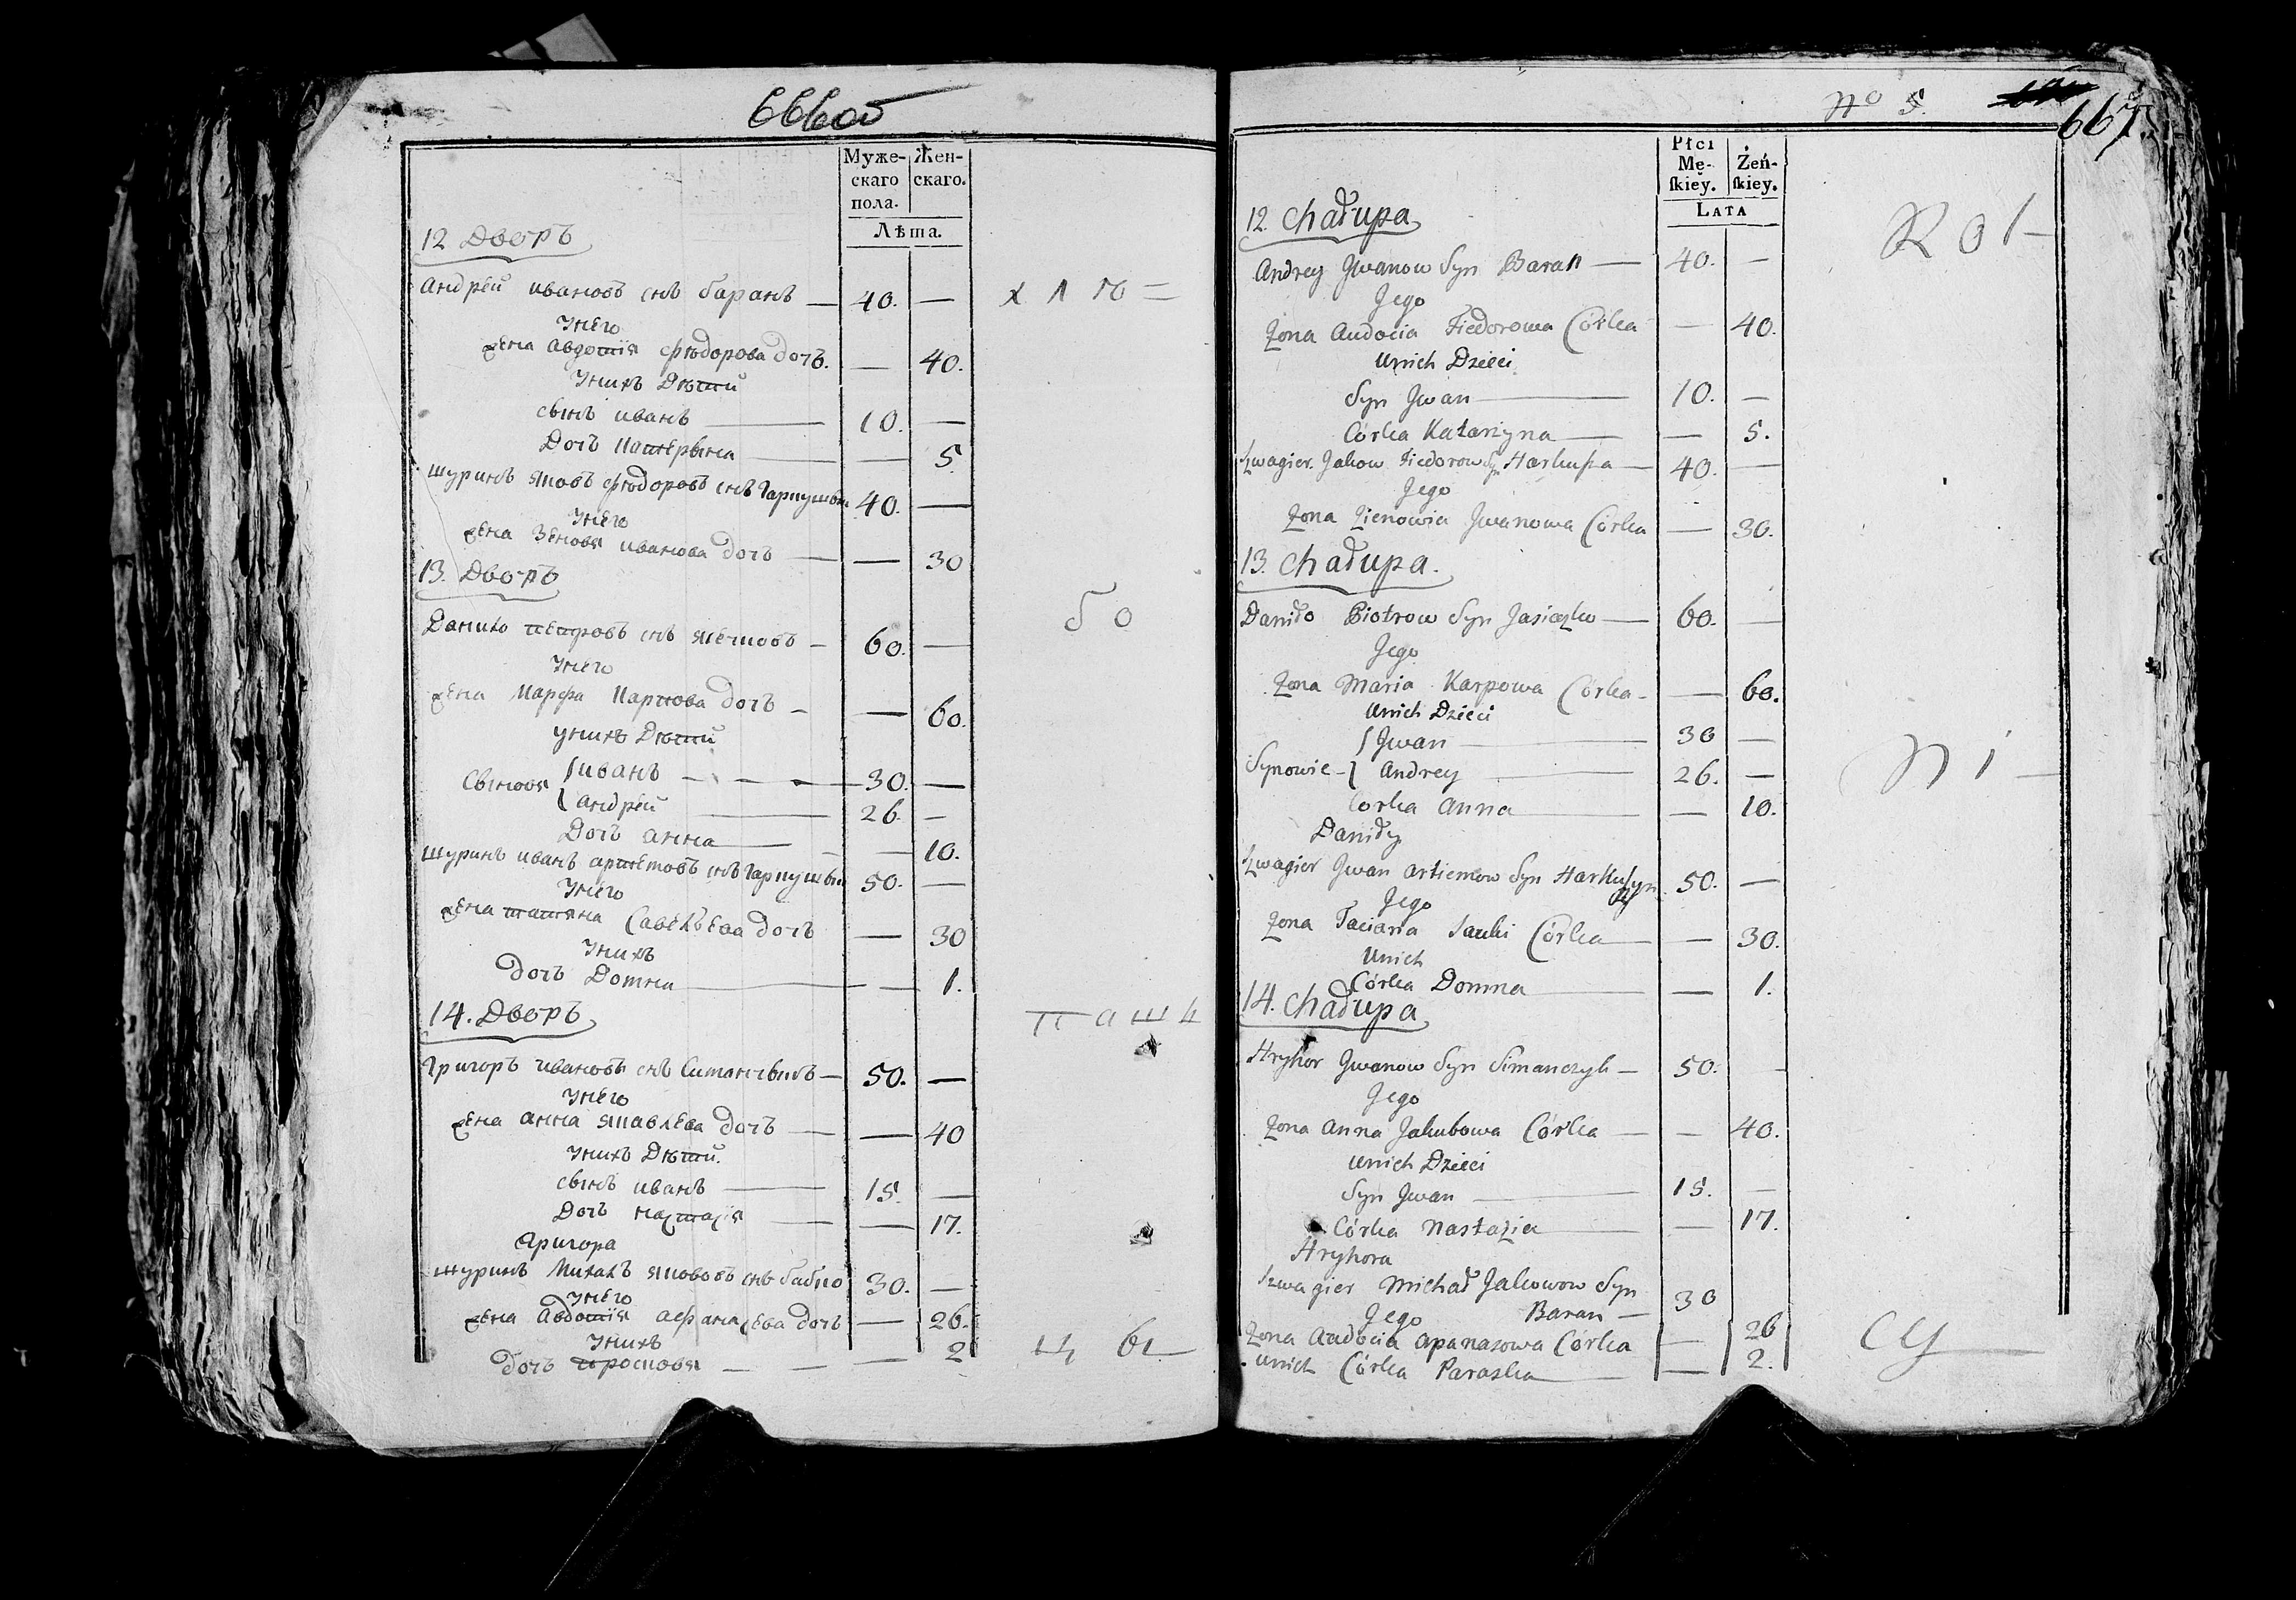 666об
Муже- Жен-
скаго скаго.
пола.
Лѣта.
12 Дворъ
Андрей ивановъ снъ баранъ — 40. —
унего
жена Авдотія фѣдорова дочъ. — 40.
унихъ Дѣти
сынъ иванъ — 10. —
Дочъ Катерына — 5.
шуринъ яковъ фѣдоровъ снъ 40. —
унего
жена Зеновя иванова дочъ — 30
13. Дворъ
Данило петровъ снъ — 60. —
унего
жена Марфа Карпова дочъ — 60.
унихъ Дѣти
Сыновя иванъ — 30. —
андрей — 26. —
Дочъ анна — 10.
шуринъ иванъ артемовъ снъ 50. —
унего
жена татяна Савельева дочъ — 30
унихъ
дочъ Домна — 1.
14. Дворъ
Григоръ ивановъ снъ Симанчыкъ — 50. —
унего
жена анна яковлева дочъ — 40
унихъ Дѣти.
сынъ иванъ — 15. —
Дочъ настасія — 17.
Григора
шуринъ Михалъ яковов снъ 30. —
унего
жена Авдотія афанасева дочъ — 26.
унихъ
дочъ просковя — 2
б о
п а ш н
ц ы
No 5.
667.
Płci
Mę- Żeń-
ſkiéy. ſkiey.
LATA
12. Chałupa
Andrey Jwanow Syn Baran — 40. —
Jego
Żona Audocia Fiedorowa Córka — 40.
Unich Dzieci
Syn Jwan — 10. —
Córka Katarzyna — 5.
Szwagier Jakow Fiedorow Syn Harkusza — 40. —
Jego
Żona Zienowia Jwanowa Córka — 30.
13. Chałupa.
Daniło Piotrow Syn — 60. —
Jego
Żona Maria Karpowa Córka — 60.
Unich Dzieci
Jwan — 30 —
Synowie Andrey — 26. —
Córka Anna — 10.
Daniły
Szwagier Jwan Artiemow Syn 50. —
Jego
Żona Taciana Sauki Córka — 30.
Unich
Córka Domna — 1.
14. Chałupa
Hryhor Jwanow Syn Simanczyk — 50. —
Jego
Żona Anna Jakubowa Córka — 40.
Unich Dzieci
Syn Jwan — 15. —
Córka Nastazia — 17.
Hryhora
Szwagier Michał Jakowow Syn
Jego Baran — 30
Żona Audocia Apanasowa Córka — 26
Unich Córka Paraska — 2.
R o l
n i
c y